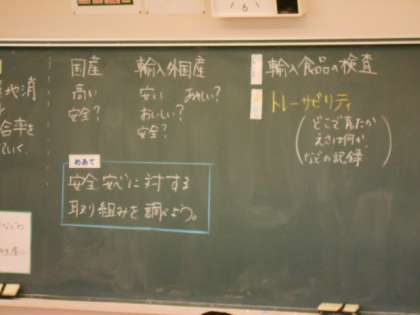 地消
合率を
ていく。
国産
高い
安全?
輸入外国産
安い あやしい?
おいしい?
安全?
めあて
安全安心に対する
取り組みを調べよう。
輸入食品の検査
トレーサビリティ
(どこで育たか
えさは何か
などの記録)